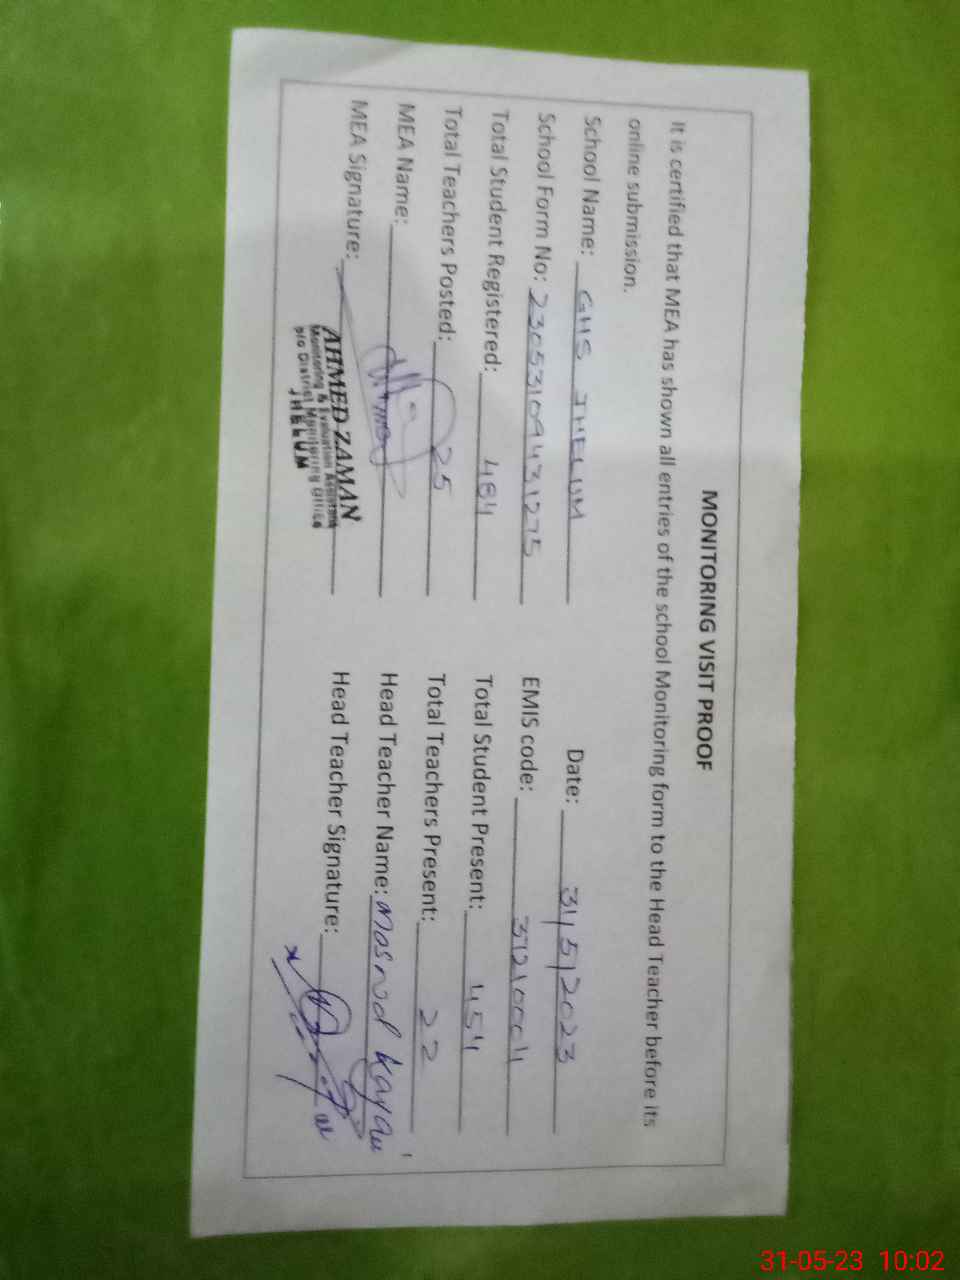 MONITORING VISIT PROOF
It is certified that MEA has shown all entries of the school Monitoring form to the Head Teacher before its
online submission.
School Name: GHS JHELUM Date: 31/5/2023
School Form No: 23053109431275 EMIS code: 37210004
Total Student Registered: 484 Total Student Present: 454
Total Teachers Posted: 25 Total Teachers Present: 22
MEA Name: Head Teacher Name:
MEA Signature: Head Teacher Signature:
AHMED ZAMAN
Monitoring & Evaluation Assistant
O/o District Monitoring Office
JHELUM
31-05-23 10:02